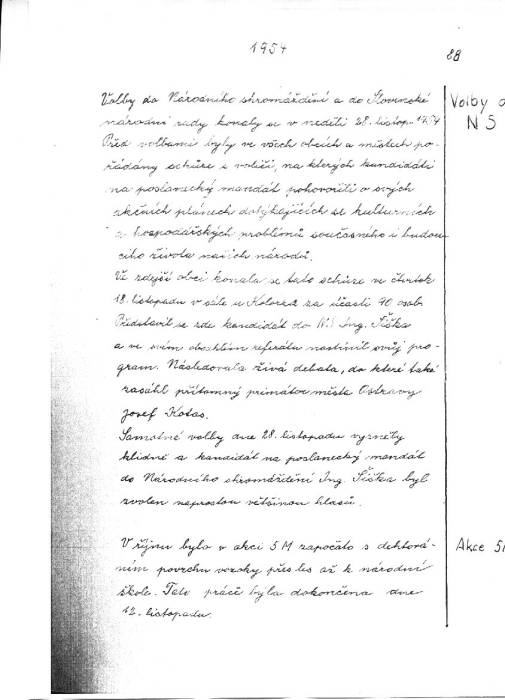 1954
88
Volby do Národního shromáždění a do Slovenské
Volby d
národní rady konaly se v neděli 28. listop. 1954
NS
Před volbami byly ve všech obcích a místech po-
řádány schůze s voliči, na kterých kandidáti
na poslanecký mandát pohovořili o svých
akčních plánech dotýkajících se kulturních
a hospodářských problémů současného i budou-
cího života našich národů.
Ve zdejší obci konala se tato schůze ve čtvrtek
18. listopadu v sále u Kolorza za účasti 70 osob
Představil se zde kandidát do NS Ing. Šiška
a ve svém obsáhlém referátu nastínil svůj pro-
gram. Následovala živá debata, do které také
zasáhl přítomný primátor města Ostravy
Josef Kotas.
Samotné volby dne 28. listopadu vyzněly
klidně a kandidát na poslanecký mandát
do Národního shromáždění Ing. Šiška byl
zvolen naprostou většinou hlasů.
V říjnu bylo v akci 5M započato s dehtorá-
Akce 5
ním povrchu vozovky přes les až k národní
škole. Tato práce byla dokončena dne
12. listopadu.